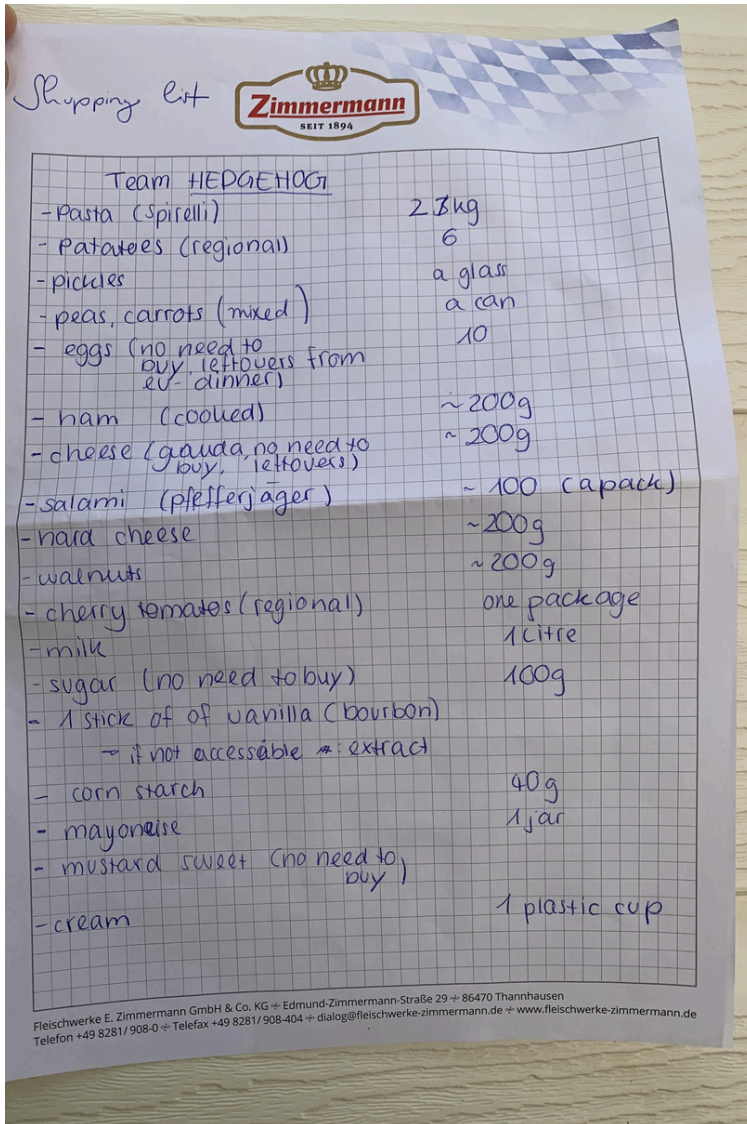 Shopping list
Zimmermann
SEIT 1894
Team HEDGEHOG
- Pasta (Spirelli) 2 kg
- Patatoes (regional) 6
- pickles a glass
- peas, carrots (mixed) a can
- eggs (no need to 10
buy, leftovers from
ev- dinner)
- ham (cooked) ~200g
- cheese (gauda, no need to ~ 200g
buy, leftovers)
- salami (pfefferjäger) ~ 100 (a pack)
- hard cheese ~200g
- walnuts ~200g
- cherry tomatos (regional) one package
- milk 1 Litre
- sugar (no need to buy) 100g
- 1 stick of of vanilla (bourbon)
→ if not accessable : extract
- corn starch 40g
- mayonaise 1 jar
- mustard sweet (no need to
buy)
- cream 1 plastic cup
Fleischwerke E. Zimmermann GmbH & Co. KG ÷ Edmund-Zimmermann-Straße 29 ÷ 86470 Thannhausen
Telefon +49 8281/ 908-0 ÷ Telefax +49 8281/ 908-404 ÷ dialog@fleischwerke-zimmermann.de ÷ www.fleischwerke-zimmermann.de